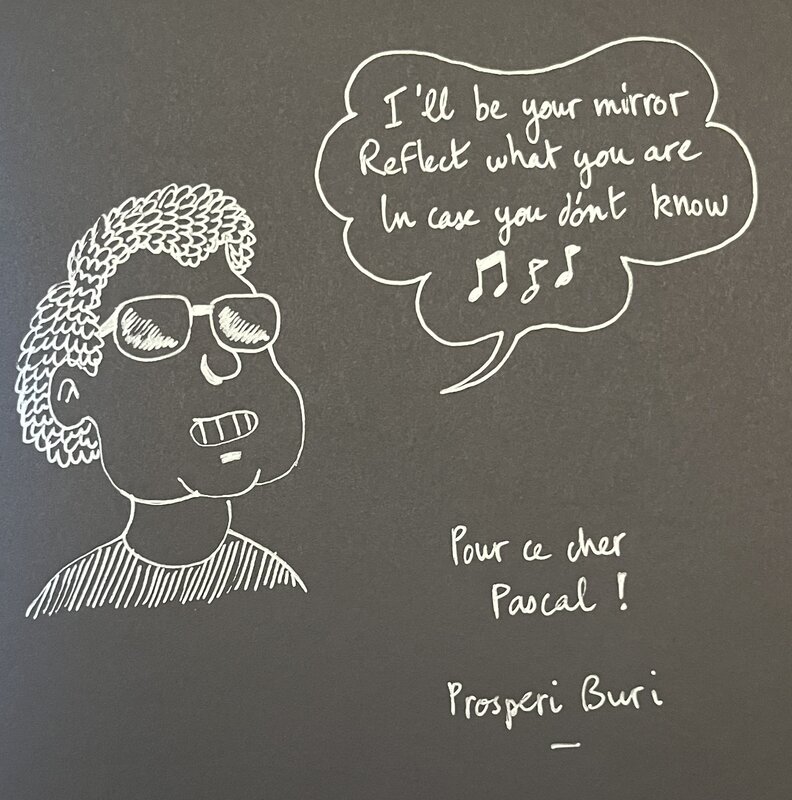 I'll be your mirror
Reflect what you are
In case you dón't know
Pour ce cher
Pascal !
Prosperi Buri